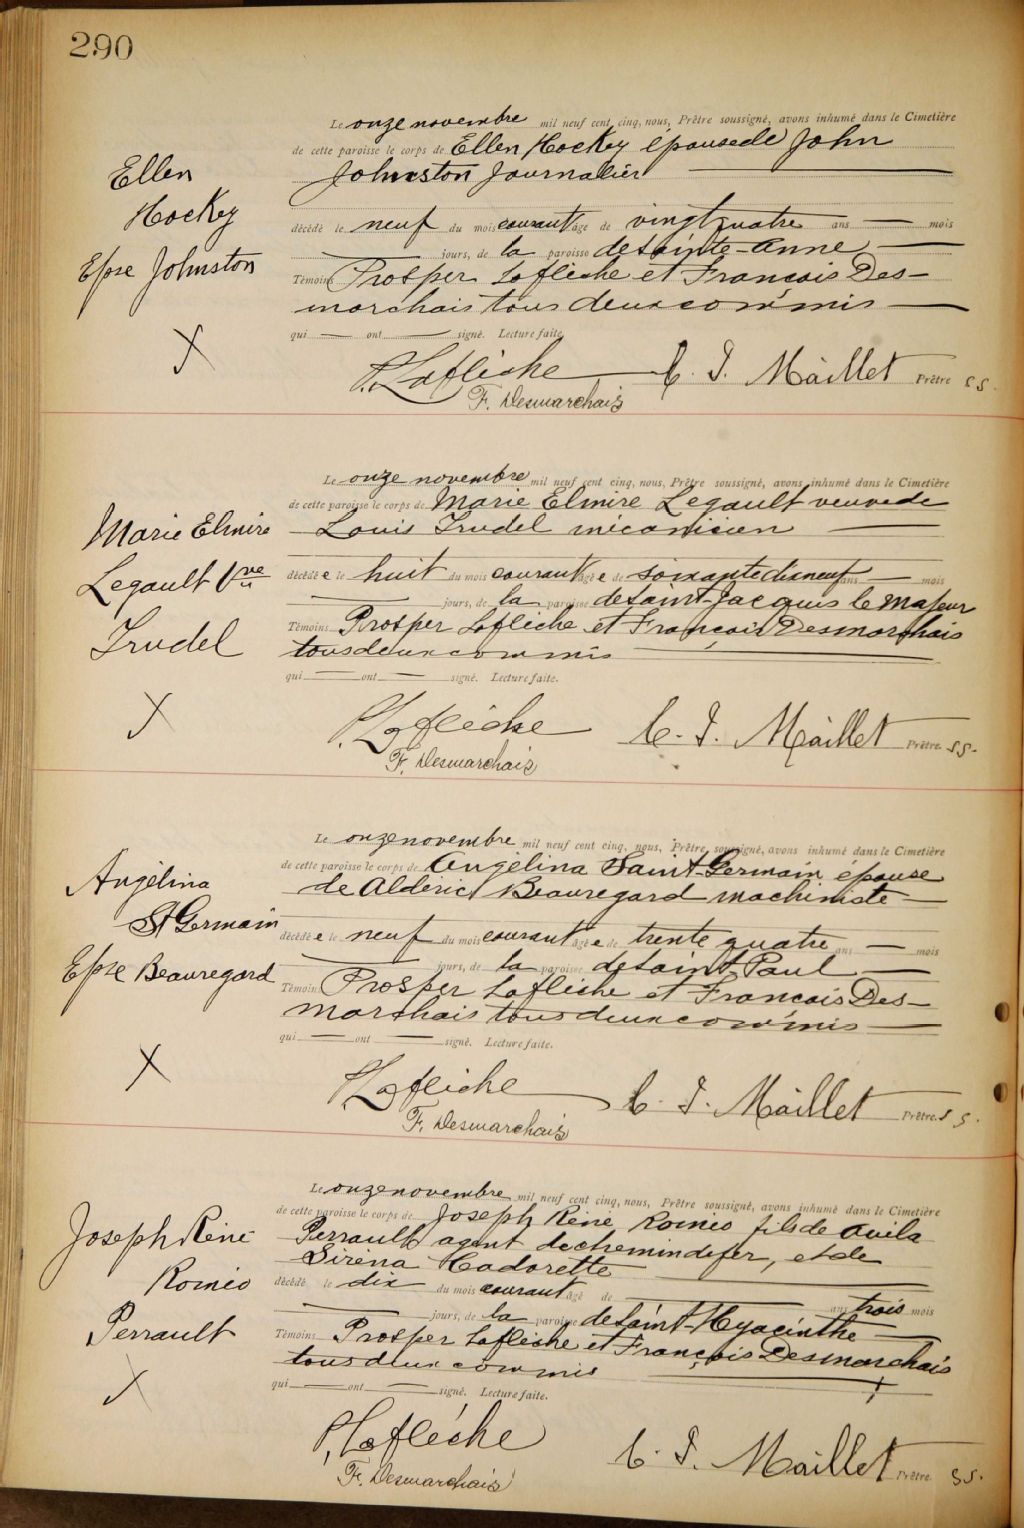 290
Le onze novembre mil neuf cent cinq, nous, Prêtre soussigné, avons inhumé dans le Cimetière
de cette paroisse le corps de Ellen Hockey épouse de John
Johnston Journalier
Ellen
Hockey
Epse Johnston
décédé le neuf du mois courant âgé de vingt quatre ans — mois
— jours, de la paroisse de Sainte-Anne —
Témoins Prosper Laflèche et François Des-
marchais tous deux commis —
qui — ont — signé. Lecture faite.
P. Laflèche C. J. Maillet Prêtre SS.
F. Desmarchais
Le onze novembre mil neuf cent cinq, nous, Prêtre soussigné, avons inhumé dans le Cimetière
de cette paroisse le corps de Marie Elmire Legault veuve de
Louis Trudel mécanicien —
Marie Elmire
Legault Vve
Trudel
décédée le huit du mois courant âgée de soixante dix neuf ans — mois
— jours, de la paroisse de Saint-Jacques le Majeur
Témoins Prosper Laflèche et François Desmarchais
tous deux commis —
qui — ont — signé. Lecture faite.
P. Laflèche C. J. Maillet Prêtre. SS.
F. Desmarchais
Le onze novembre mil neuf cent cinq, nous, Prêtre soussigné, avons inhumé dans le Cimetière
de cette paroisse le corps de Angélina Saint-Germain épouse
de Aldéric Beauregard machiniste —
Angélina
St Germain
Epse Beauregard
décédée le neuf du mois courant âgée de trente quatre ans — mois
— jours, de la paroisse de Saint-Paul —
Témoins Prosper Laflèche et François Des-
marchais tous deux commis —
qui — ont — signé. Lecture faite.
P. Laflèche C. J. Maillet Prêtre. SS.
F. Desmarchais
Le onze novembre mil neuf cent cinq, nous, Prêtre soussigné, avons inhumé dans le Cimetière
de cette paroisse le corps de Joseph Réné Roméo fils de Avila
Perrault agent de chemin de fer, et de
Siréna Cadorette —
Joseph Réné
Roméo
Perrault
décédé le dix du mois courant âgé de — ans trois mois
— jours, de la paroisse de Saint-Hyacinthe —
Témoins Prosper Laflèche et François Desmarchais
tous deux commis —
qui — ont — signé. Lecture faite.
P. Laflèche C. J. Maillet Prêtre. SS.
F. Desmarchais